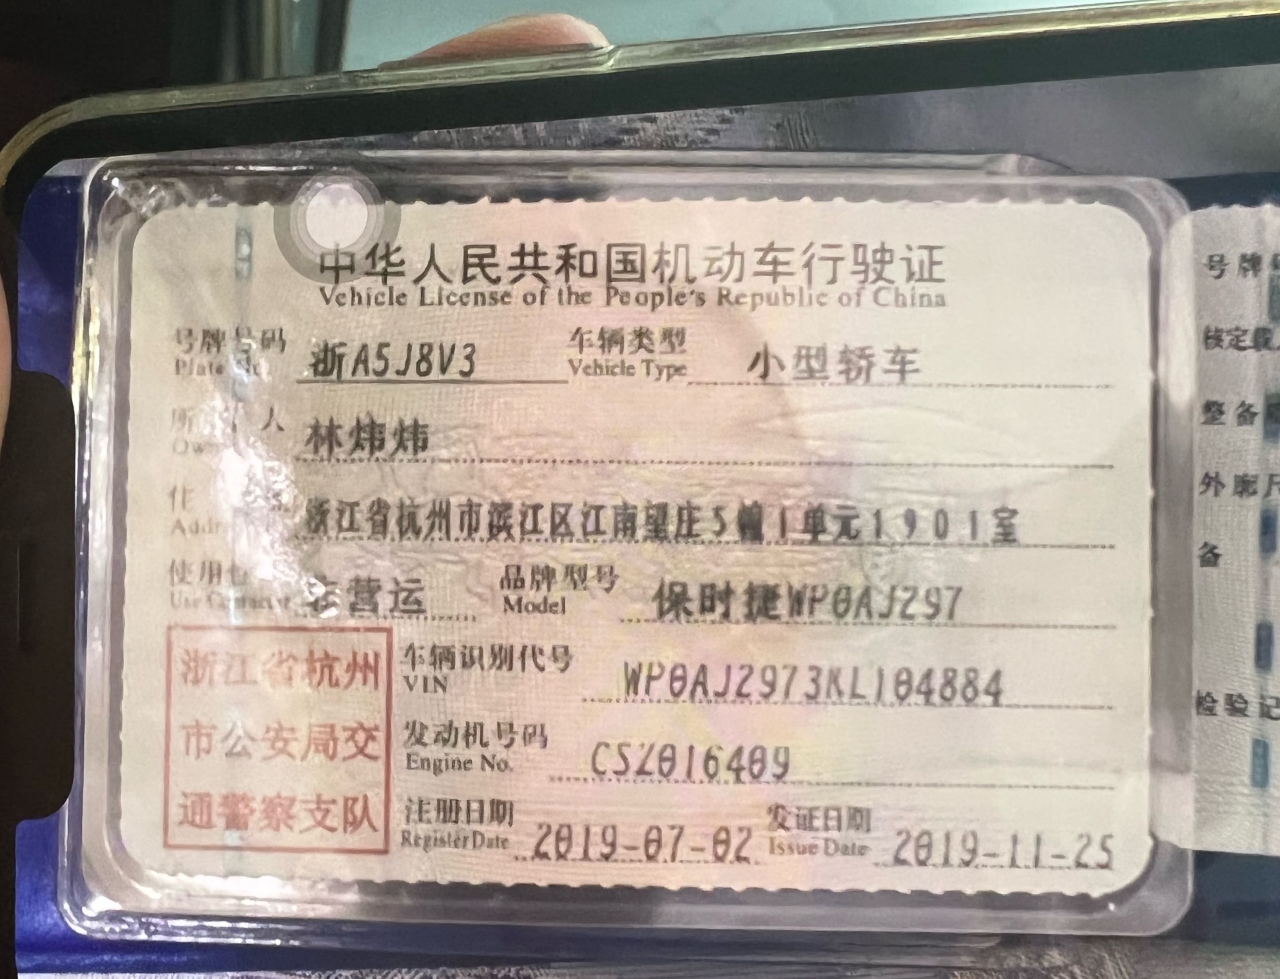 中华人民共和国机动车行驶证
Vehicle License of the People's Republic of China
号牌号码 浙A5J8V3 车辆类型 小型轿车
Plate No. Vehicle Type
所 人 林炜炜
住
浙江省杭州市滨江区江南望庄5幢1单元1901室
使用 非营运 品牌型号 保时捷WP0AJ297
Use Character Model
浙江省杭州
市公安局交
通警察支队
车辆识别代号 WP0AJ2973KL104884
VIN
发动机号码 CSZ016409
Engine No.
注册日期 2019-07-02 发证日期 2019-11-25
Register Date Issue Date
号牌
核定载
整备
外廓尺
备
检验记